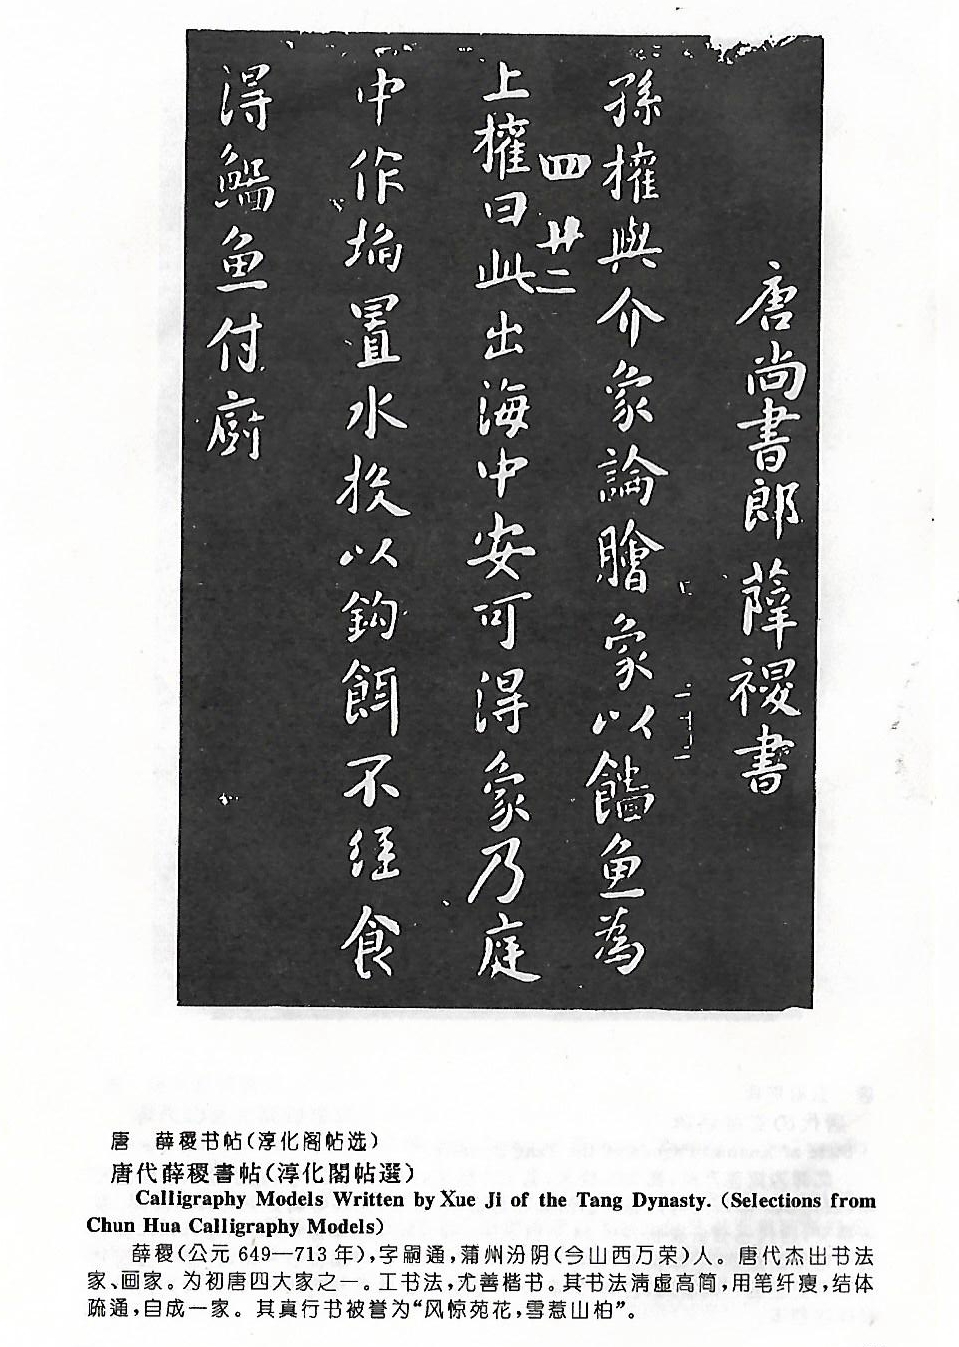 唐尚書郎薛稷書
孫權與介象論膾象以鯔魚為
四 廿二
上權曰此出海中安可得象乃庭
中作埳置水投以鈎餌不經食
得鯔魚付廚
唐 薛稷书帖(淳化阁帖选)
唐代薛稷書帖(淳化閣帖選)
Calligraphy Models Written by Xue Ji of the Tang Dynasty. (Selections from
Chun Hua Calligraphy Models)
薛稷(公元649—713年),字嗣通,蒲州汾阴(今山西万荣)人。唐代杰出书法
家、画家。为初唐四大家之一。工书法,尤善楷书。其书法清虚高简,用笔纤瘦,结体
疏通,自成一家。其真行书被誉为“风惊苑花,雪惹山柏”。